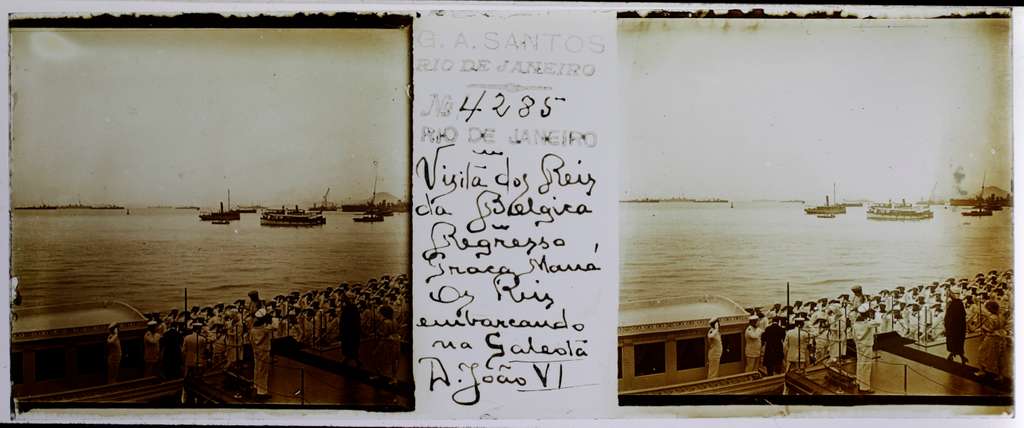 G. A. SANTOS
RIO DE JANEIRO
No 4285
RIO DE JANEIRO
Visita dos Reis
da Belgica
Regresso
Praça Mauá
Os Reis
embarcando
na Galeota
D. João VI